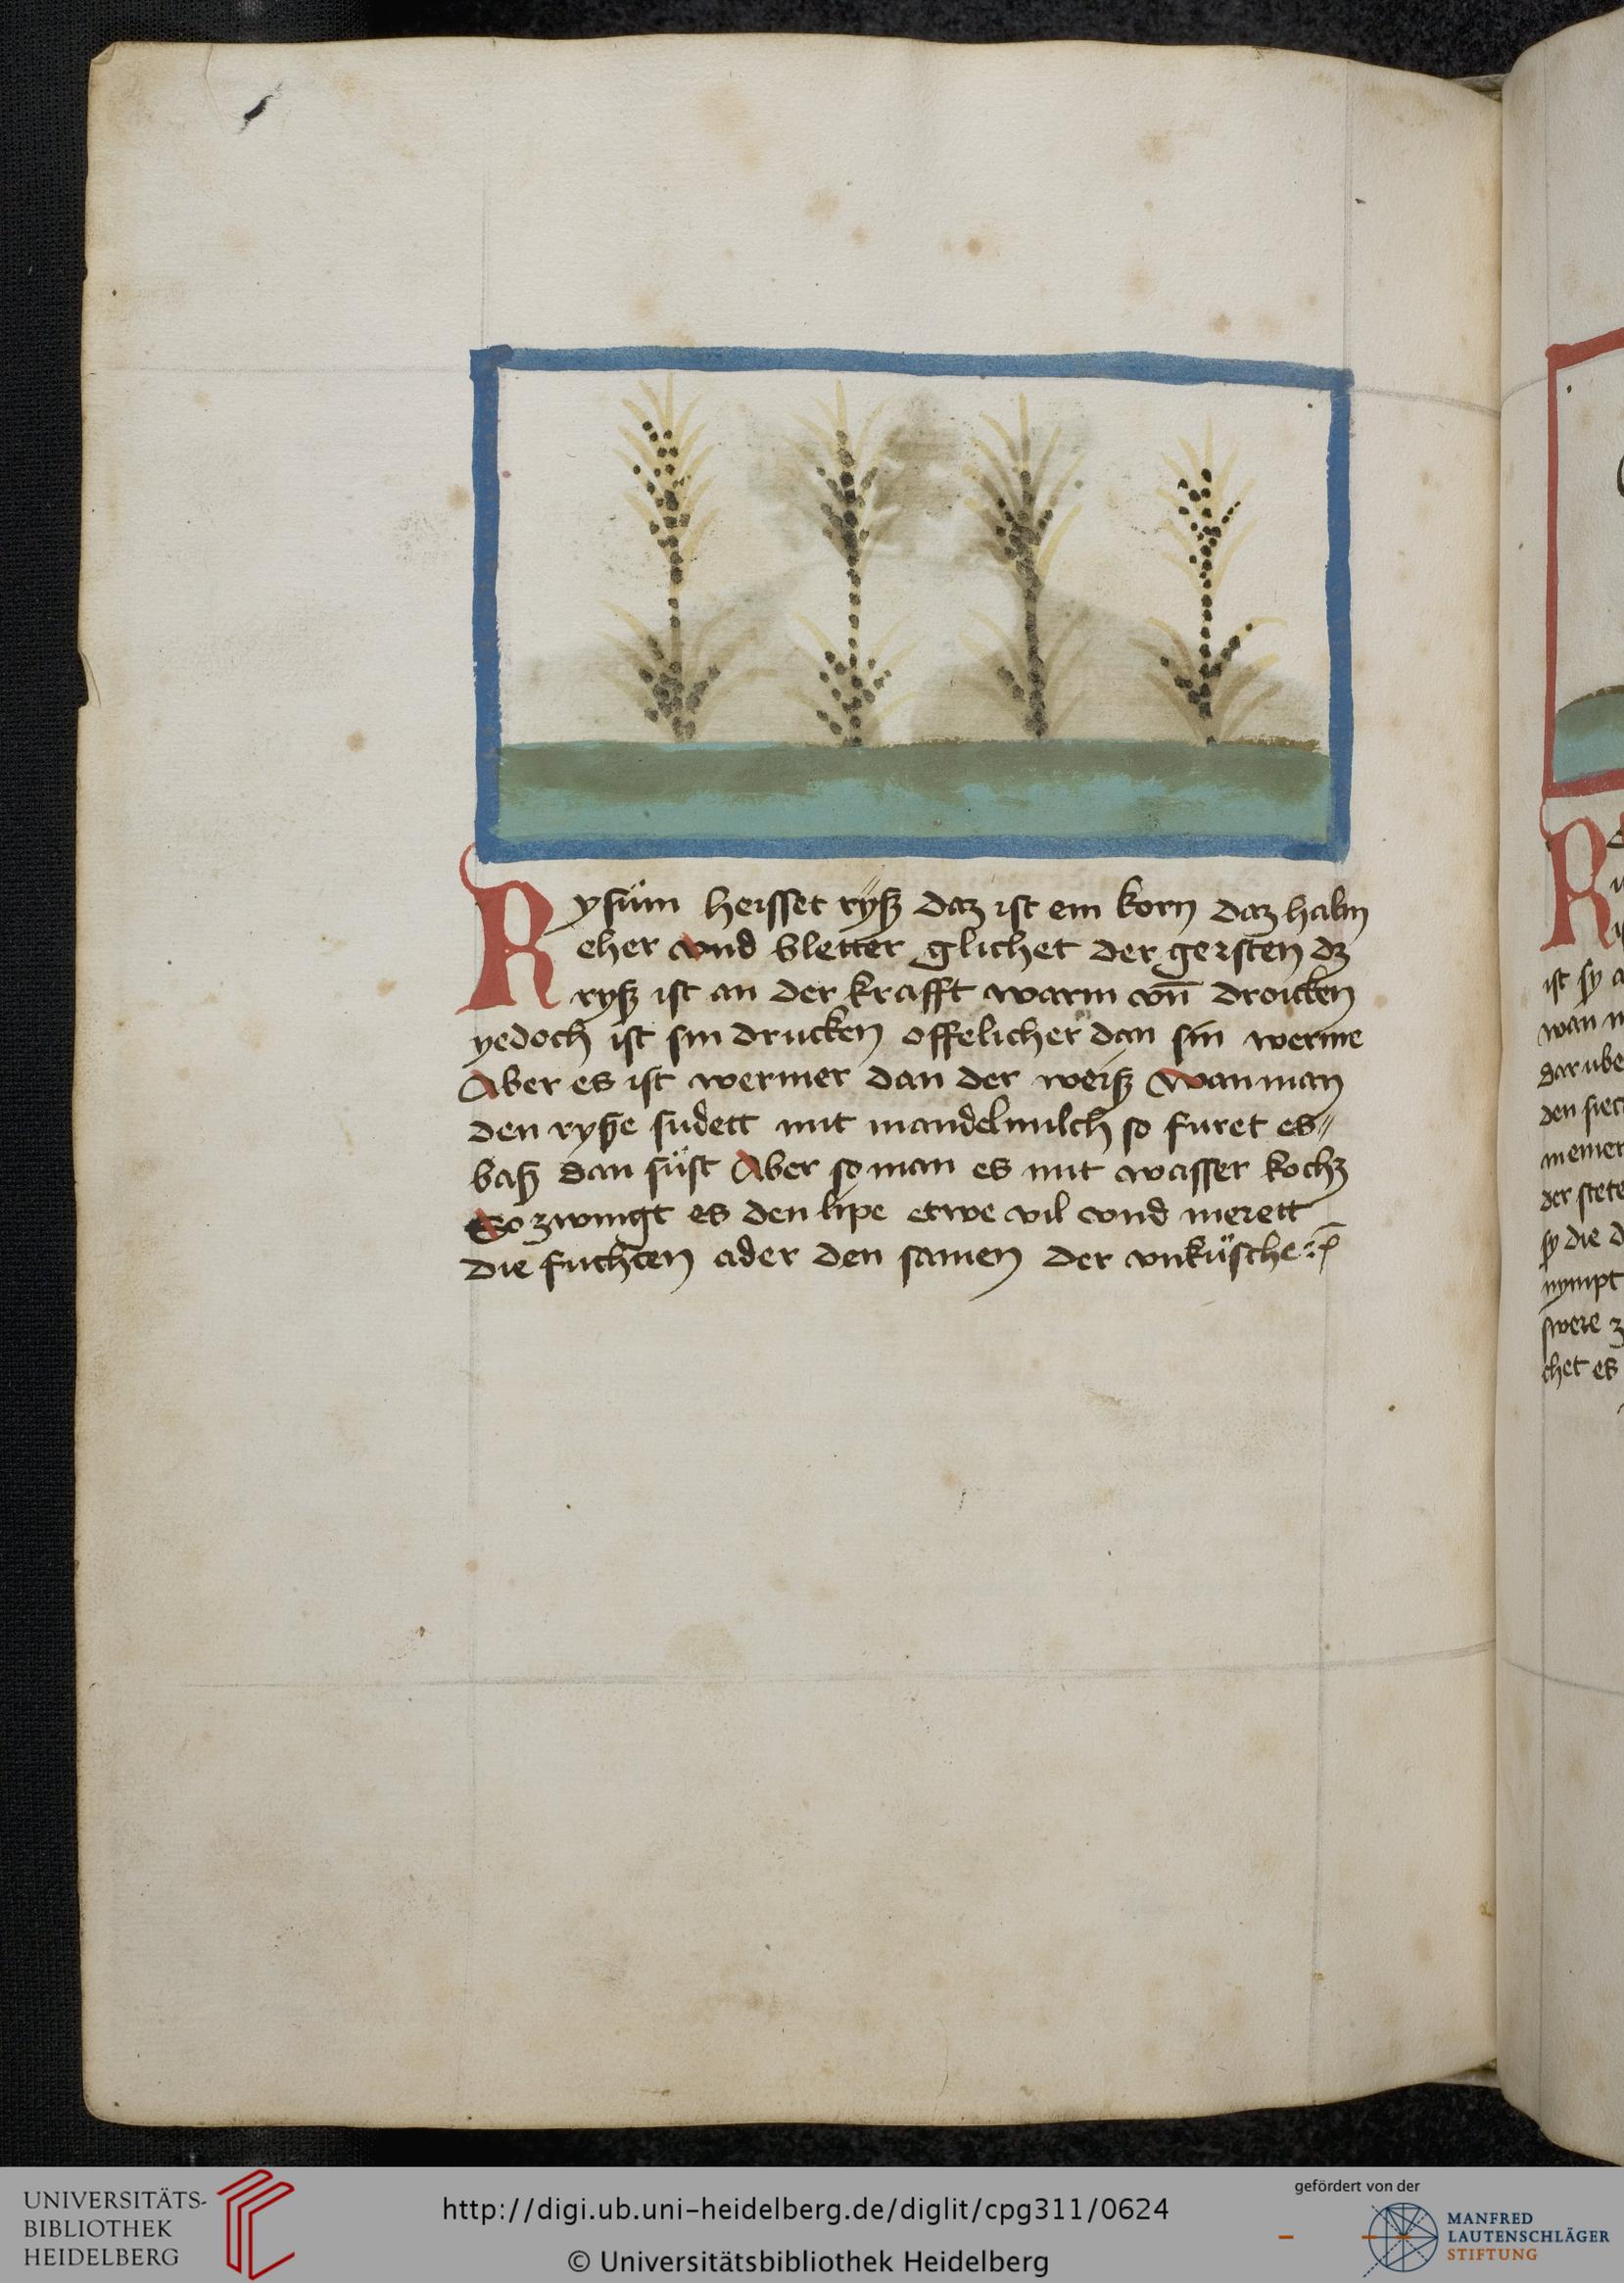 Rysüm heisset ryß daz ist ein korn daz halm
eher vnd bletter glichet der gersten dz
ryß ist an der krafft warm vn̄ droicken
yedoch ist sin drucken offelicher dan sin werme
Aber es ist wermer dan der weiß Wan man
den ryße sudett mit mandelmilch so furet es
baß dan süst Aber so man es mit wasser kochz
So zwingt es den lipe etwe vil vnd merett
Die fuchten ader den samen der vnküsche
R
ist sy
wan
dar ube
den siec
meiner
der stete
sy die d
nympt
swere z
chet es
UNIVERSITÄTS-
BIBLIOTHEK
HEIDELBERG
http://digi.ub.uni-heidelberg.de/diglit/cpg311/0624
© Universitätsbibliothek Heidelberg
gefördert von der
MANFRED
LAUTENSCHLÄGER
STIFTUNG